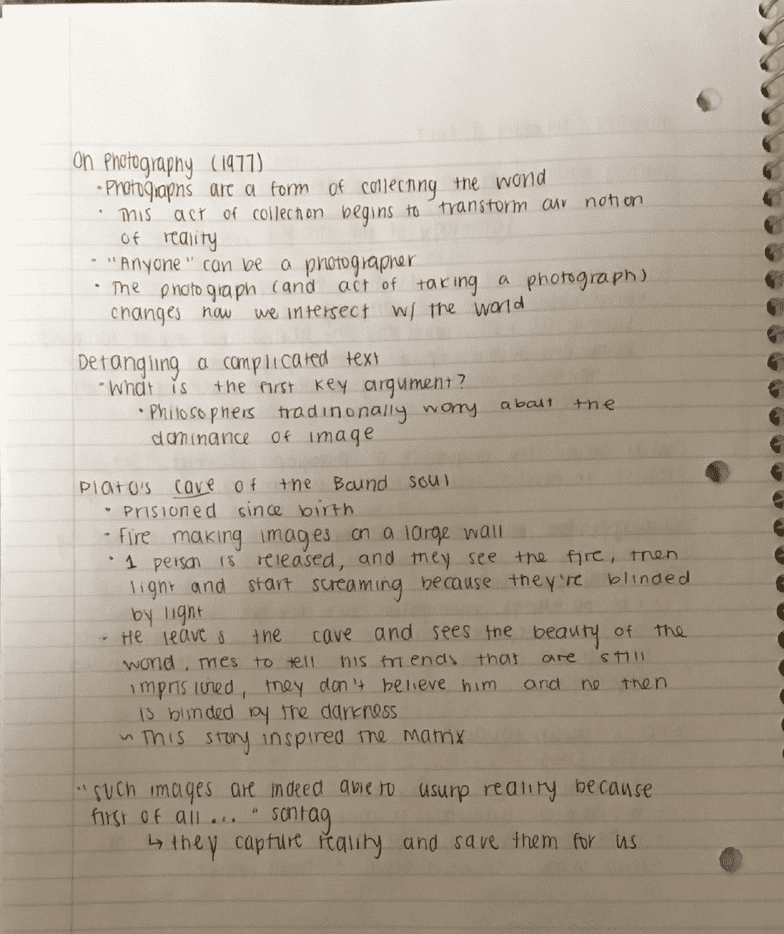 On Photography (1977)
• Photographs are a form of collecting the world
• This act of collection begins to transform our notion
of reality
• "Anyone" can be a photographer
• The photograph (and act of taking a photograph)
changes how we intersect w/ the world
Detangling a complicated text
• What is the first key argument?
• Philosophers traditionally worry about the
dominance of image
Plato's cave of the Bound soul
• Prisioned since birth
• Fire making images on a large wall
• 1 person is released, and they see the fire, then
light and start screaming because they're blinded
by light
• He leaves the cave and sees the beauty of the
world. Tries to tell his friends that are still
imprisioned, they don't believe him and he then
is blinded by the darkness
~ This story inspired the Matrix
"Such images are indeed able to usurp reality because
first of all ... " Sontag
↳ they capture reality and save them for us